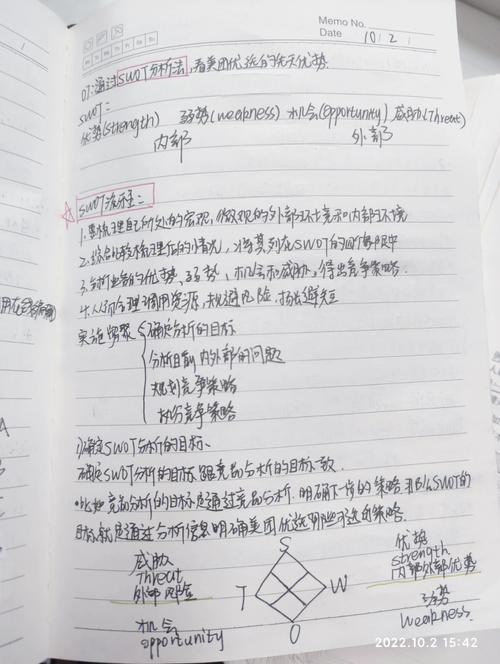 Memo No.
Date 10 / 2 /
Mo Tu We Th Fr Sa Su
07: 通过SWOT分析法,看美团优选的优劣优势.
SWOT:
优势(strength) 弱势(weakness) 机会(opportunity) 威胁(Threat)
内部 外部
☆ SWOT流程:
1.梳理自己所处的宏观,微观的外部环境和内部环境
2.综合比较梳理后的情况,将其列在SWOT的四个象限中
3.分析业务的优势、弱势、机会和威胁,得出竞争策略.
4.从而合理调用资源,规避风险,扬长避短
实施步骤 确定分析的目标
分析目前内外部的问题
规划竞争策略
拆分竞争策略
1)确定SWOT分析的目标、
确定SWOT分析的目标跟竞品分析的目标一致.
•比如竞品分析的目标是通过竞品分析,明确下一步的策略,那么SWOT的
目标就是通过分析信息明确美团优选的策略.
威胁
Threat
外部风险
机会
opportunity
S
T
W
O
优势
strength
内部外部优势
弱势
weakness
2022.10.2 15:42